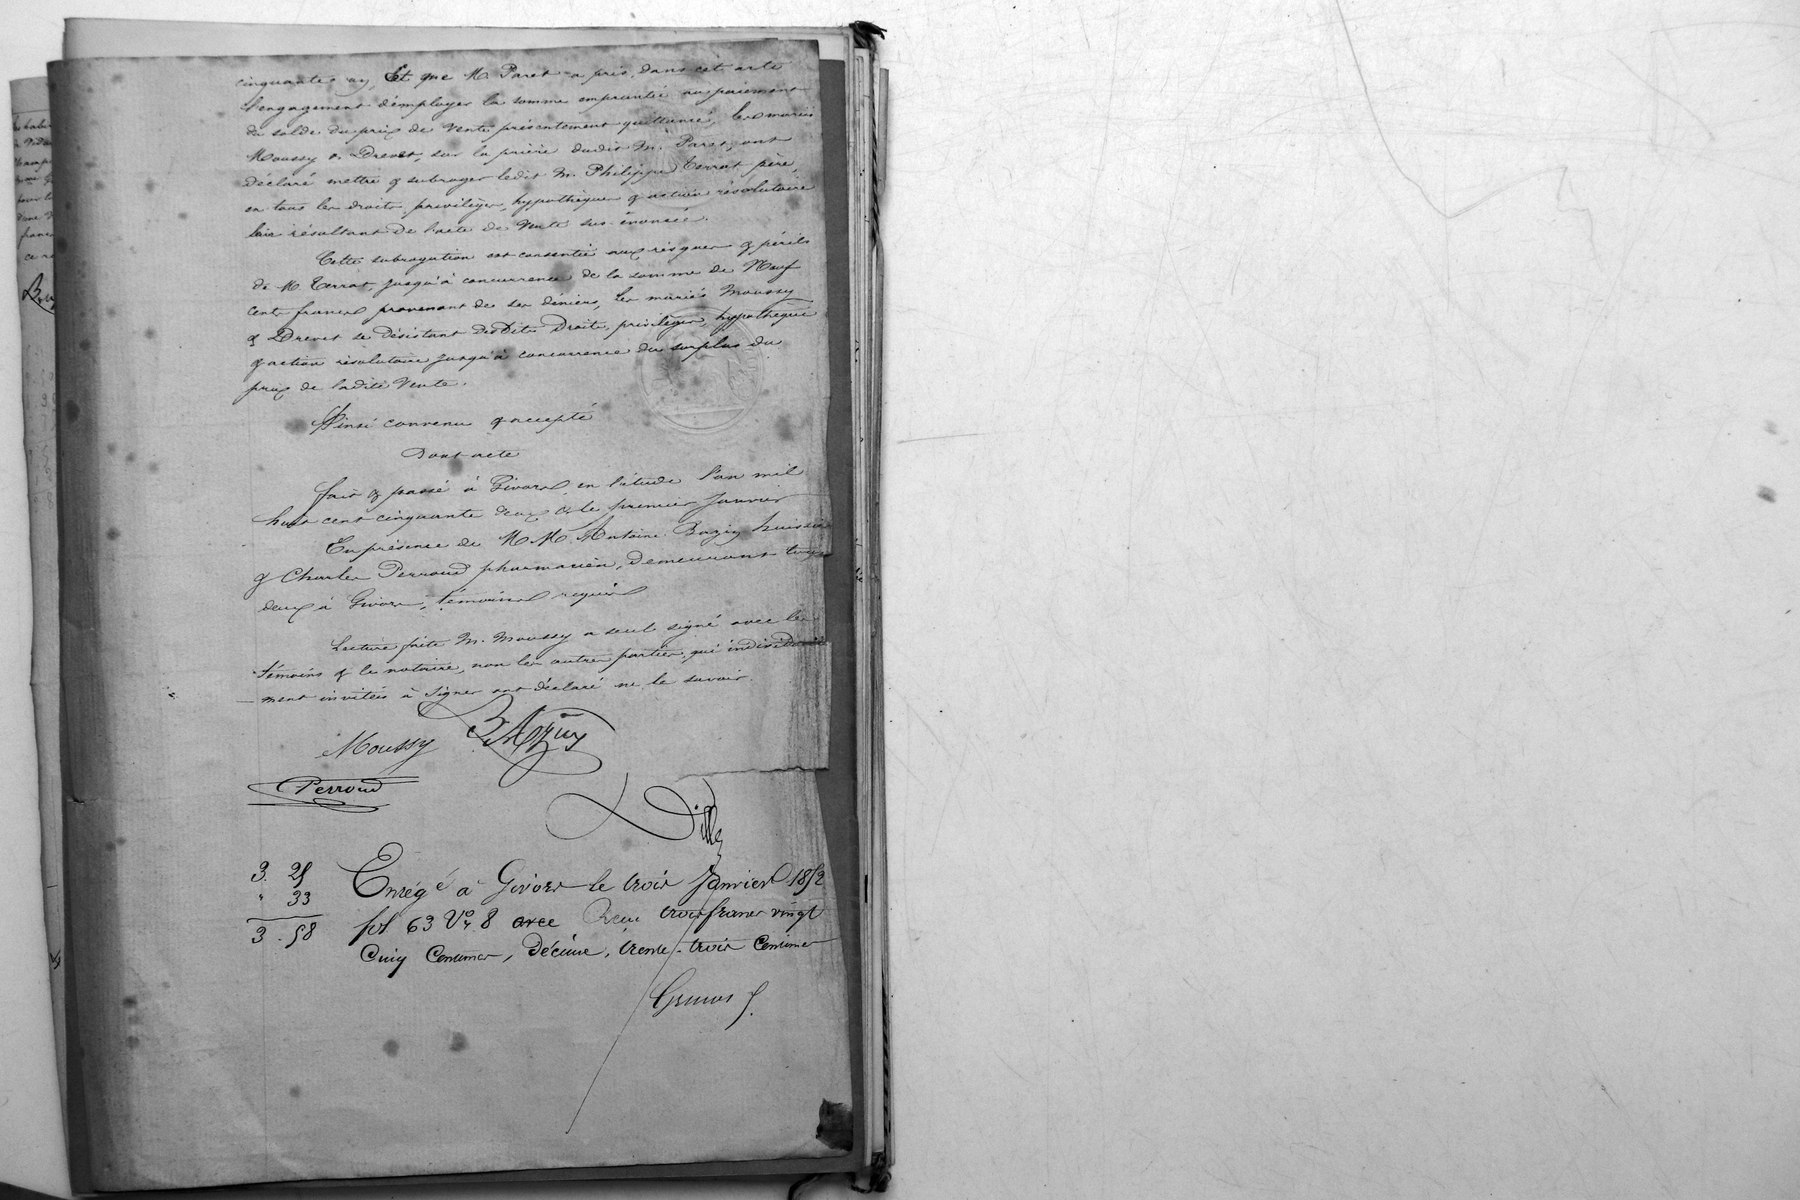 cinquante un, Et que M. Paret a pris, dans cet acte
l'engagement d'employer la somme empruntée au paiement
du solde du prix de vente présentement quittancé, les mariés
Moussy & Drevet, sur la prière dudit M. Paret, ont
déclaré mettre & subroger ledit M. Philippe Terrat père,
en tous les droits, privilèges, hypothèques & action résolutoire
résultant de l'acte de vente sus-énoncé.
Cette subrogation est consentie aux risques & périls
de M. Terrat, jusqu'à concurrence de la somme de Neuf
cents francs provenant de ses deniers, les mariés Moussy
& Drevet se désistant desdits Droits, privilèges, hypothèque
& action résolutoire jusqu'à concurrence du surplus du
prix de ladite Vente.
Ainsi convenu & accepté
Dont acte
fait & passé à Givors, en l'étude l'an mil
huit cent cinquante deux & le premier Janvier
En présence de M.M. Antoine Bazin huissier
& Charles Perroud pharmacien, demeurant tous
deux à Givors, témoins requis
Lecture faite M. Moussy a seul signé avec les
témoins & le notaire, non les autres parties qui individuelle
ment invitées à signer ont déclaré ne le savoir.
Moussy Bazin
Perroud
3. 25 Enregé à Givors le trois Janvier 1852
" 33 fol 63 Vo 8 avec Reçu trois francs vingt
3. 58 Cinq Centimes, Décime, trente-trois Centimes